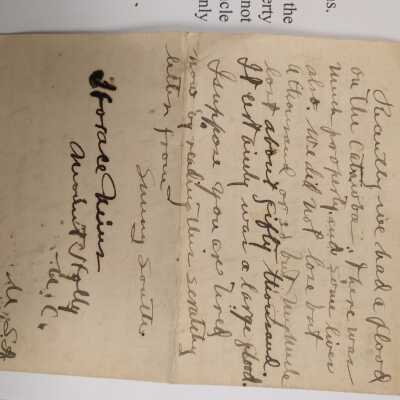 Recently we had a flood
on the Catawba. There was
much property and some lives
also. We did not lose but
a thousand or so but my uncle
lost about fifty thousand.
It certainly was a large flood.
I suppose you are tired
now of reading this
letter from
Sunny South.
Horace
Mount Holly
N.C.
U.S.A
ns.
the
erty
not
cle
only